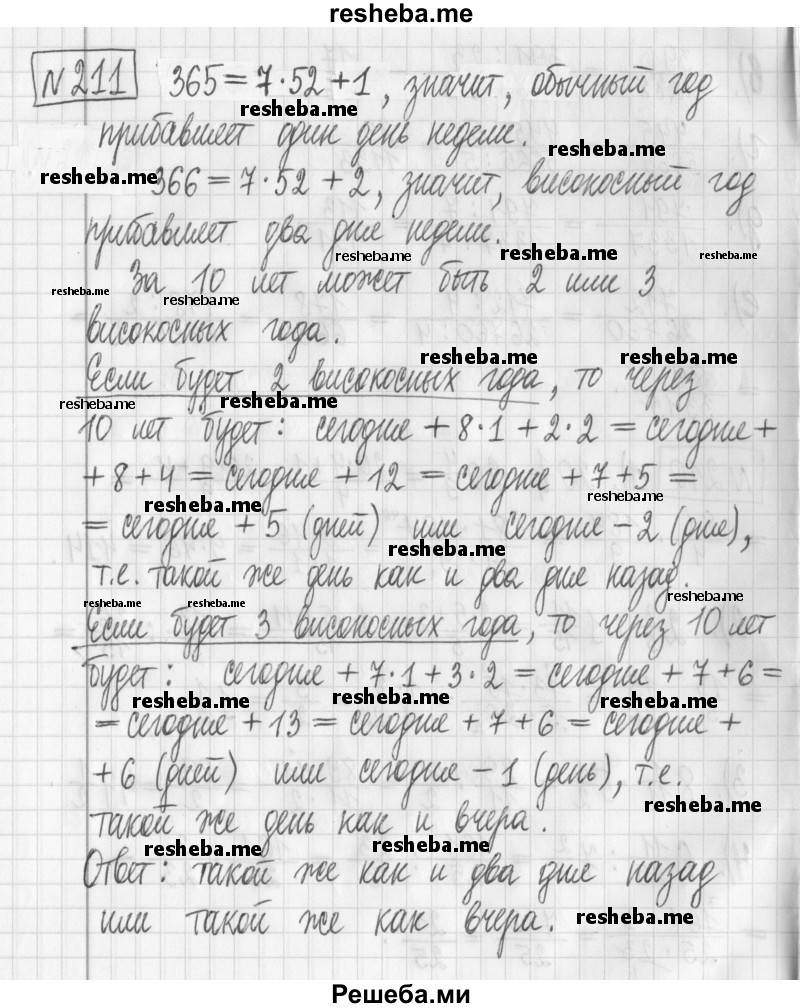 resheba.me
№ 211 365 = 7·52 + 1, значит, обычный год
resheba.me
прибавляет один день недели.
resheba.me
resheba.me
366 = 7·52 + 2, значит, високосный год
прибавляет два дня недели.
resheba.me resheba.me resheba.me
За 10 лет может быть 2 или 3
resheba.me resheba.me
високосных года.
resheba.me resheba.me
Если будет 2 високосных года, то через
resheba.me resheba.me
10 лет будет: сегодня + 8·1 + 2·2 = сегодня +
+ 8 + 4 = сегодня + 12 = сегодня + 7 + 5 =
resheba.me resheba.me
= сегодня + 5 (дней) или сегодня − 2 (дня),
resheba.me
т.е. такой же день как и два дня назад.
resheba.me resheba.me resheba.me
Если будет 3 високосных года, то через 10 лет
будет: сегодня + 7·1 + 3·2 = сегодня + 7 + 6 =
resheba.me resheba.me resheba.me
= сегодня + 13 = сегодня + 7 + 6 = сегодня +
+ 6 (дней) или сегодня − 1 (день), т.е.
resheba.me
такой же день как и вчера.
resheba.me resheba.me
Ответ: такой же как и два дня назад
или такой же как вчера. resheba.me
Решеба.ми